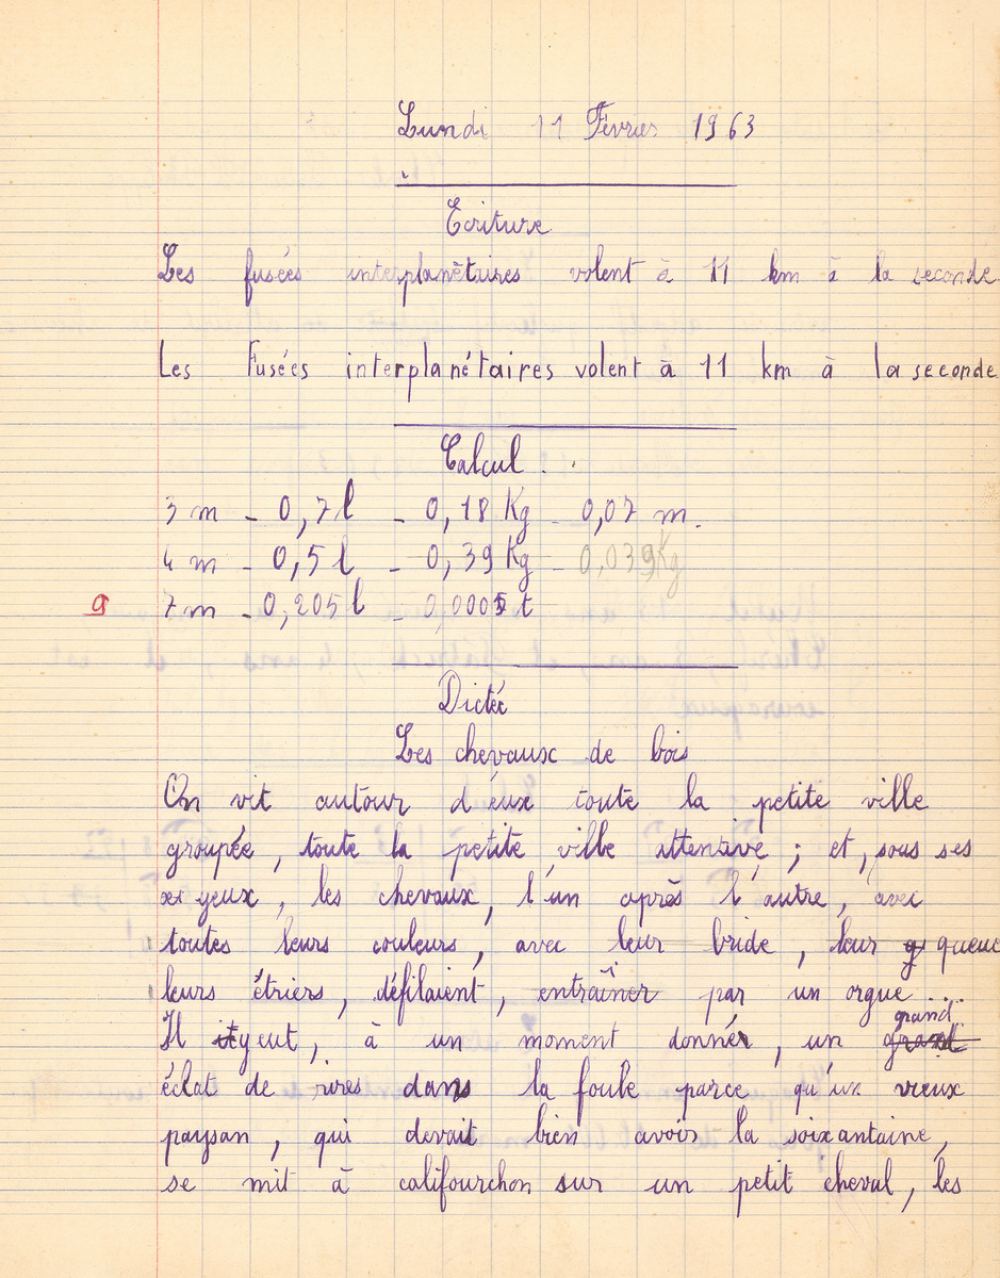 Lundi 11 Février 1963
Ecriture
Les fusées interplanétaires volent à 11 km à la seconde
Les Fusées interplanétaires volent à 11 km à la seconde
Calcul.
3 m - 0,7 l - 0,18 Kg - 0,07 m.
4 m - 0,5 l - 0,39 Kg - 0,039 Kg
9 7 m - 0,205 l - 0,0005 t
Dictée
Les chevaux de bois
On vit autour d'eux toute la petite ville
groupée, toute la petite ville attentive ; et, sous ses
yeux, les chevaux, l'un après l'autre, avec
toutes leurs couleurs, avec leur bride, leur queue
leurs étriers, défilaient, entraîner par un orgue...
Il y eut, à un moment donner, un grand
éclat de rires dans la foule parce qu'un vieux
paysan, qui devait bien avoir la soixantaine,
se mit à califourchon sur un petit cheval, les